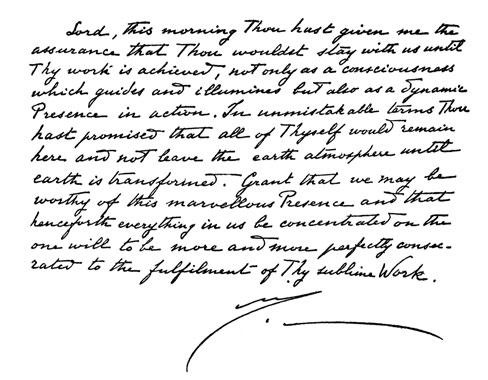 Lord, this morning Thou hast given me the
assurance that Thou wouldst stay with us until
Thy work is achieved, not only as a consciousness
which guides and illumines but also as a dynamic
Presence in action. In unmistakable terms Thou
hast promised that all of Thyself would remain
here and not leave the earth atmosphere until
earth is transformed. Grant that we may be
worthy of this marvellous Presence and that
henceforth everything in us be concentrated on the
one will to be more and more perfectly conse-
crated to the fulfilment of Thy sublime Work.